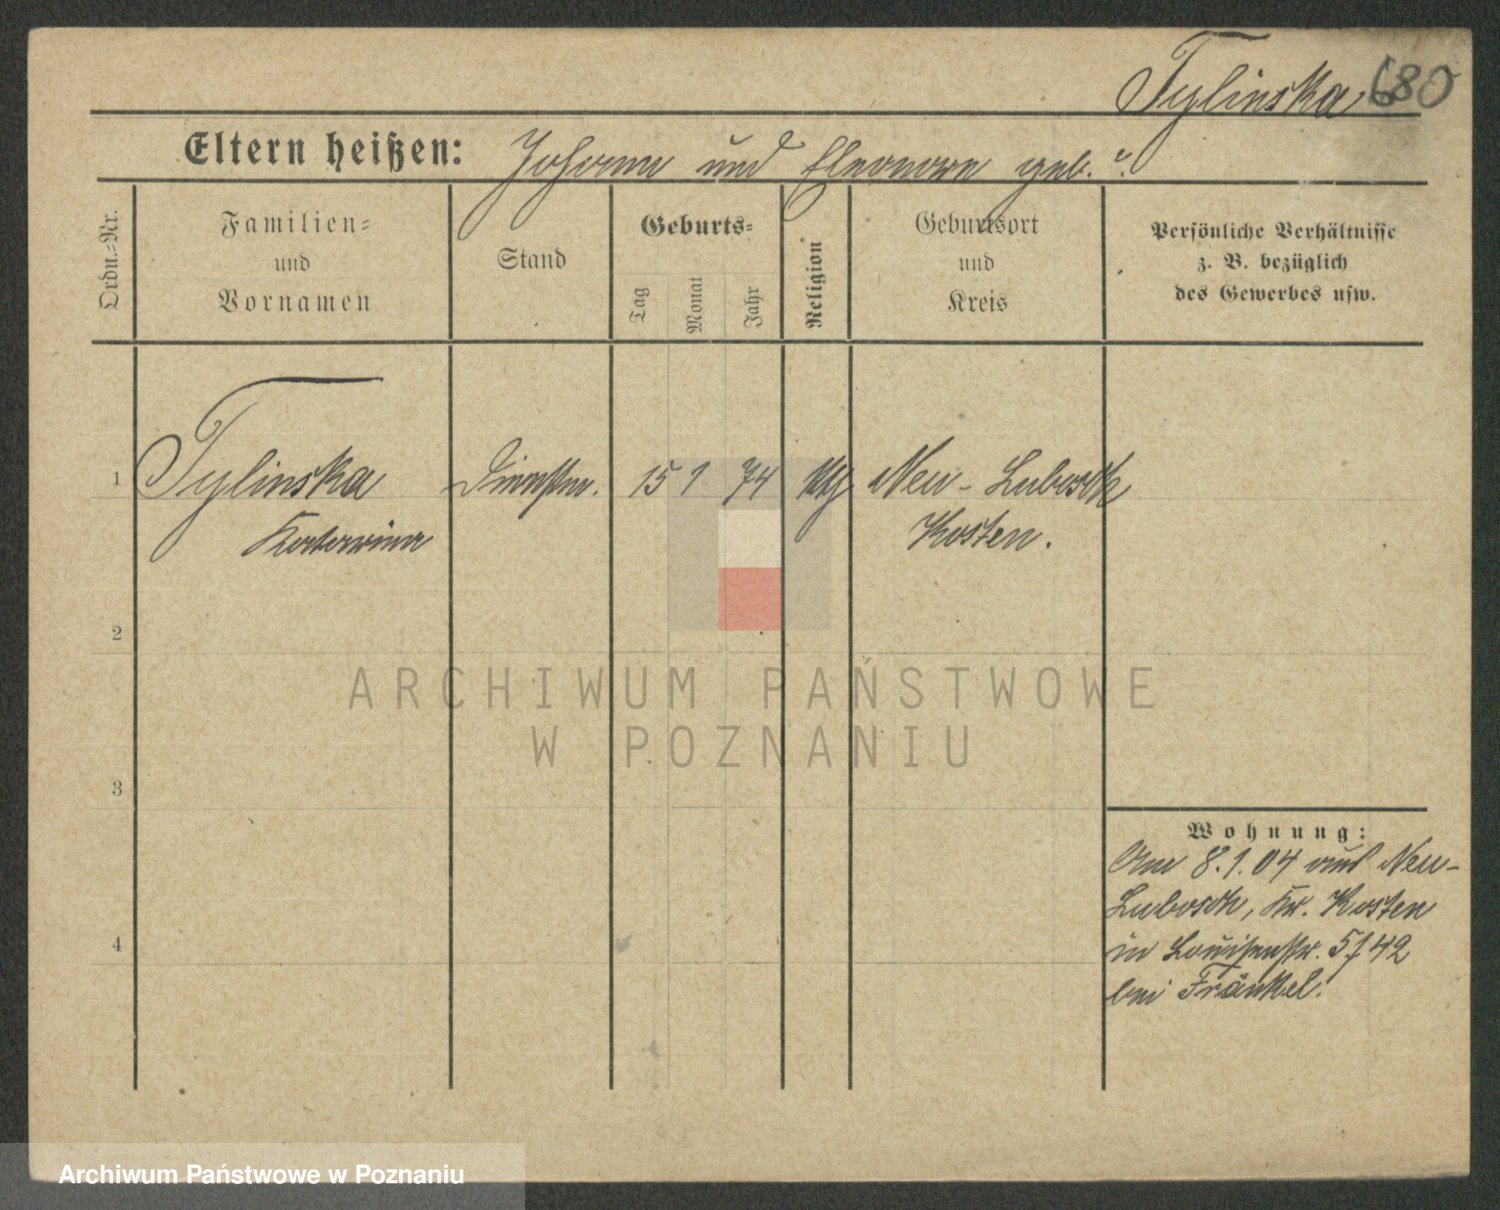 Tylinska 680
Eltern heißen: Johann und Eleonore geb. ?
Ordn.=Nr.
Familien=
und
Vornamen
Stand
Geburts=
Tag
Monat
Jahr
Religion
Geburtsort
und
Kreis
Persönliche Verhältnisse
z. B. bezüglich
des Gewerbes usw.
1 Tylinska 15 1 74 Neu-Lubosch
Katarina Kosten.
2
3
4
Wohnung:
Am 8.1.04 aus Neu-
Lubosch, Kr. Kosten
in Louisenstr. 5/42
bei Fränkel.
ARCHIWUM PAŃSTWOWE
W POZNANIU
Archiwum Państwowe w Poznaniu